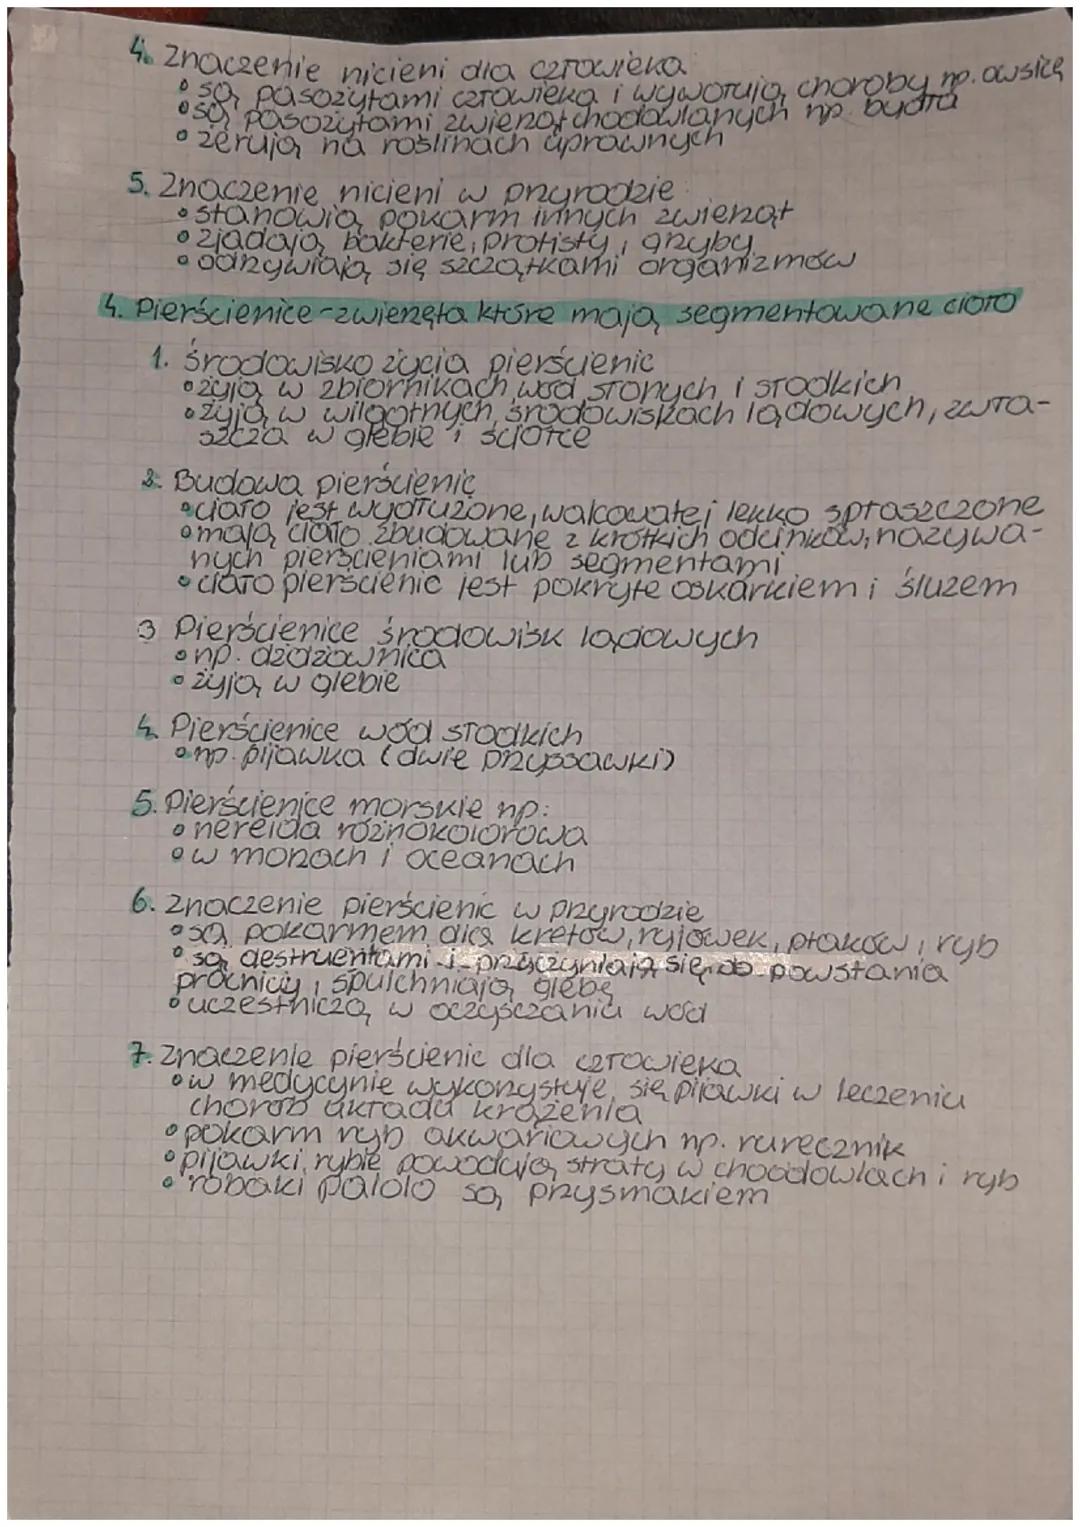 4. Znaczenie nicieni dla człowieka
• są pasożytami człowieka i wywołują choroby np. owsicę
• są pasożytami zwierząt chodowlanych np. bydła
• żerują na roślinach uprawnych
5. Znaczenie nicieni w przyrodzie
• stanowią pokarm innych zwierząt
• zjadają bakterie, protisty i grzyby
• odżywiają się szczątkami organizmów
4. Pierścienice - zwierzęta które mają segmentowane ciało
1. środowisko życia pierścienic
• żyją w zbiornikach wód słonych i słodkich
• żyją w wilgotnych środowiskach lądowych, zwła-
szcza w glebie i ściółce
2. Budowa pierścienic
• ciało jest wydłużone, walcowate i lekko spłaszczone
• mają ciało zbudowane z krótkich odcinków, nazywa-
nych pierścieniami lub segmentami
• ciało pierścienic jest pokryte oskórkiem i śluzem
3 Pierścienice środowisk lądowych
• np. dżdżownica
• żyją w glebie
4. Pierścienice wód słodkich
• np. pijawka (dwie przyssawki)
5. Pierścienice morskie np:
• nereida różnokolorowa
• w morzach i oceanach
6. Znaczenie pierścienic w przyrodzie
• są pokarmem dla kretów, ryjówek, ptaków i ryb
• są destruentami i przyczyniają się do powstania
próchnicy i spulchniają glebę
• uczestniczą w oczyszczaniu wód
7. Znaczenie pierścienic dla człowieka
• w medycynie wykorzystuje się pijawki w leczeniu
chorób układu krążenia
• pokarm ryb akwariowych np. rurecznik
• pijawki rybie powodują straty w choodowlach i ryb
• robaki palolo są przysmakiem